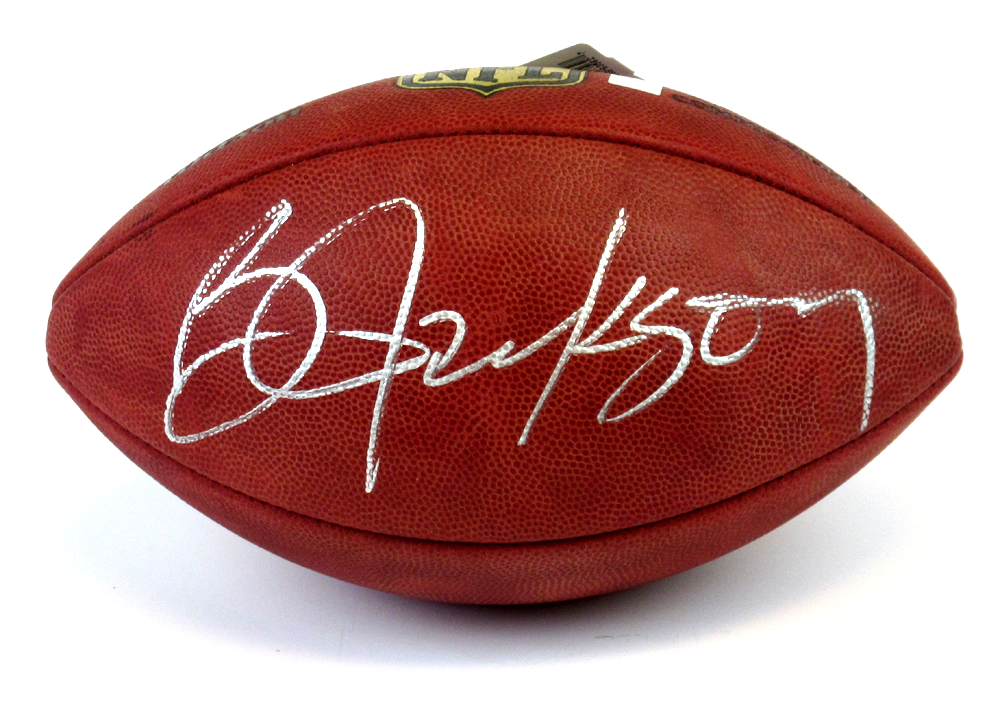 NFL
Bo Jackson